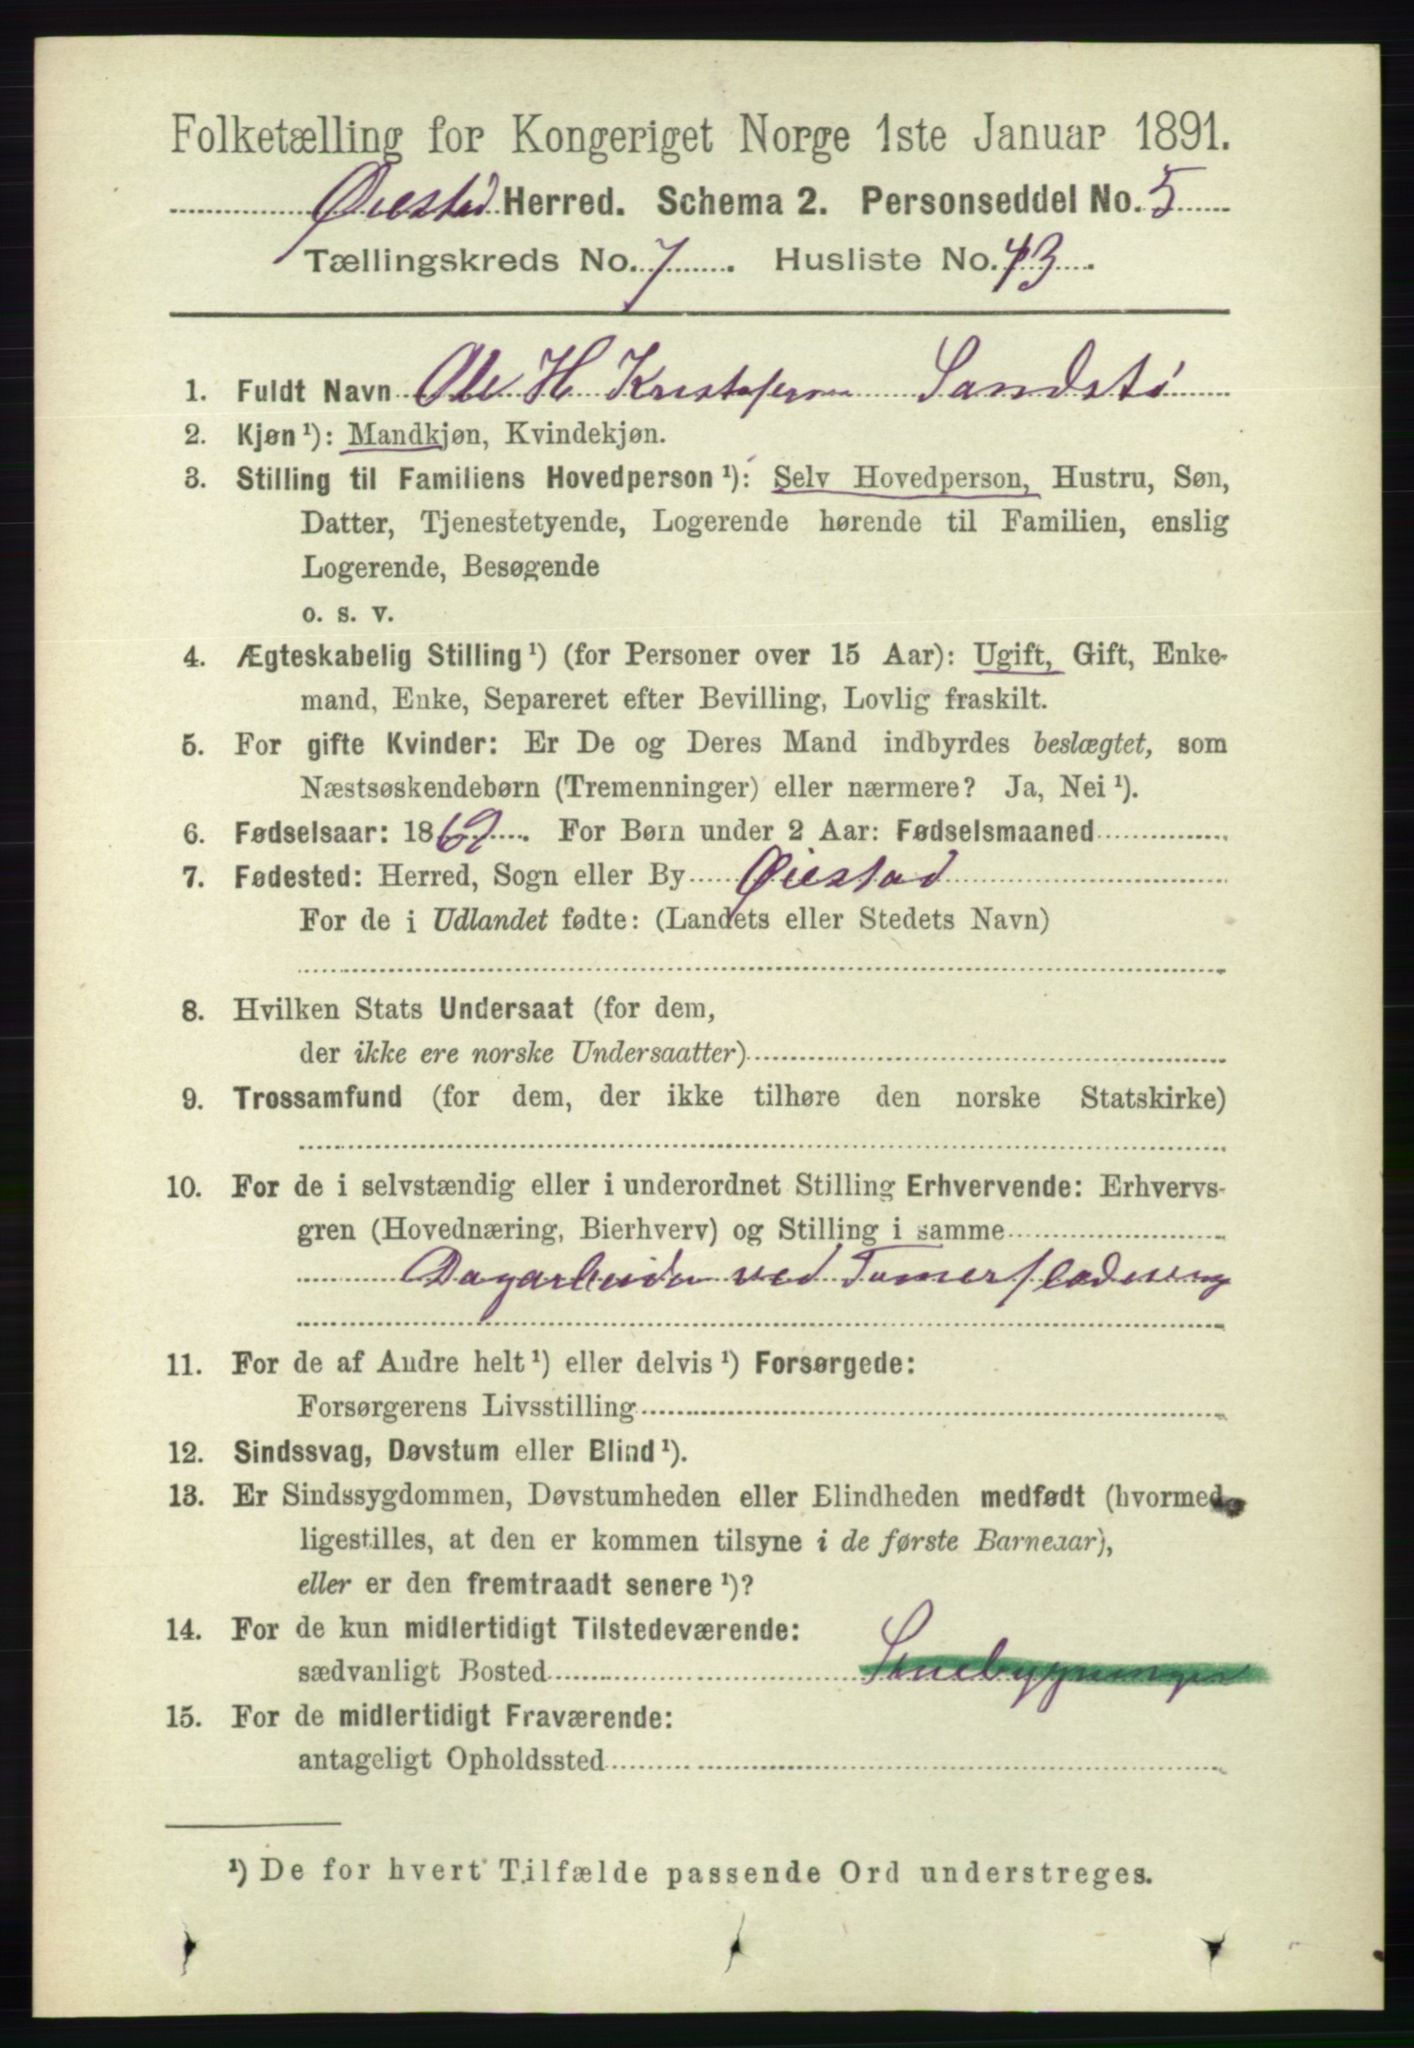 Folketælling for Kongeriget Norge 1ste Januar 1891.
Øiestad Herred. Schema 2. Personseddel No. 5
Tællingskreds No. 7. Husliste No. 43.
1. Fuldt Navn Ole H Kristofersen Sandstø
2. Kjøn¹): Mandkjøn, Kvindekjøn.
3. Stilling til Familiens Hovedperson¹): Selv Hovedperson, Hustru, Søn,
Datter, Tjenestetyende, Logerende hørende til Familien, enslig
Logerende, Besøgende
o. s. v.
4. Ægteskabelig Stilling¹) (for Personer over 15 Aar): Ugift, Gift, Enke-
mand, Enke, Separeret efter Bevilling, Lovlig fraskilt.
5. For gifte Kvinder: Er De og Deres Mand indbyrdes beslægtet, som
Næstsøskendebørn (Tremenninger) eller nærmere? Ja, Nei¹).
6. Fødselsaar: 1869. For Børn under 2 Aar: Fødselsmaaned
7. Fødested: Herred, Sogn eller By Øiestad
For de i Udlandet fødte: (Landets eller Stedets Navn)
8. Hvilken Stats Undersaat (for dem,
der ikke ere norske Undersaatter)
9. Trossamfund (for dem, der ikke tilhøre den norske Statskirke)
10. For de i selvstændig eller i underordnet Stilling Erhvervende: Erhvervs-
gren (Hovednæring, Bierhverv) og Stilling i samme
Dagarbeider ved Tømerfladning
11. For de af Andre helt¹) eller delvis¹) Forsørgede:
Forsørgerens Livsstilling
12. Sindssvag, Døvstum eller Blind¹).
13. Er Sindssygdommen, Døvstumheden eller Blindheden medfødt (hvormed
ligestilles, at den er kommen tilsyne i de første Barneaar),
eller er den fremtraadt senere¹)?
14. For de kun midlertidigt Tilstedeværende:
sædvanligt Bosted
15. For de midlertidigt Fraværende:
antageligt Opholdssted
¹) De for hvert Tilfælde passende Ord understreges.